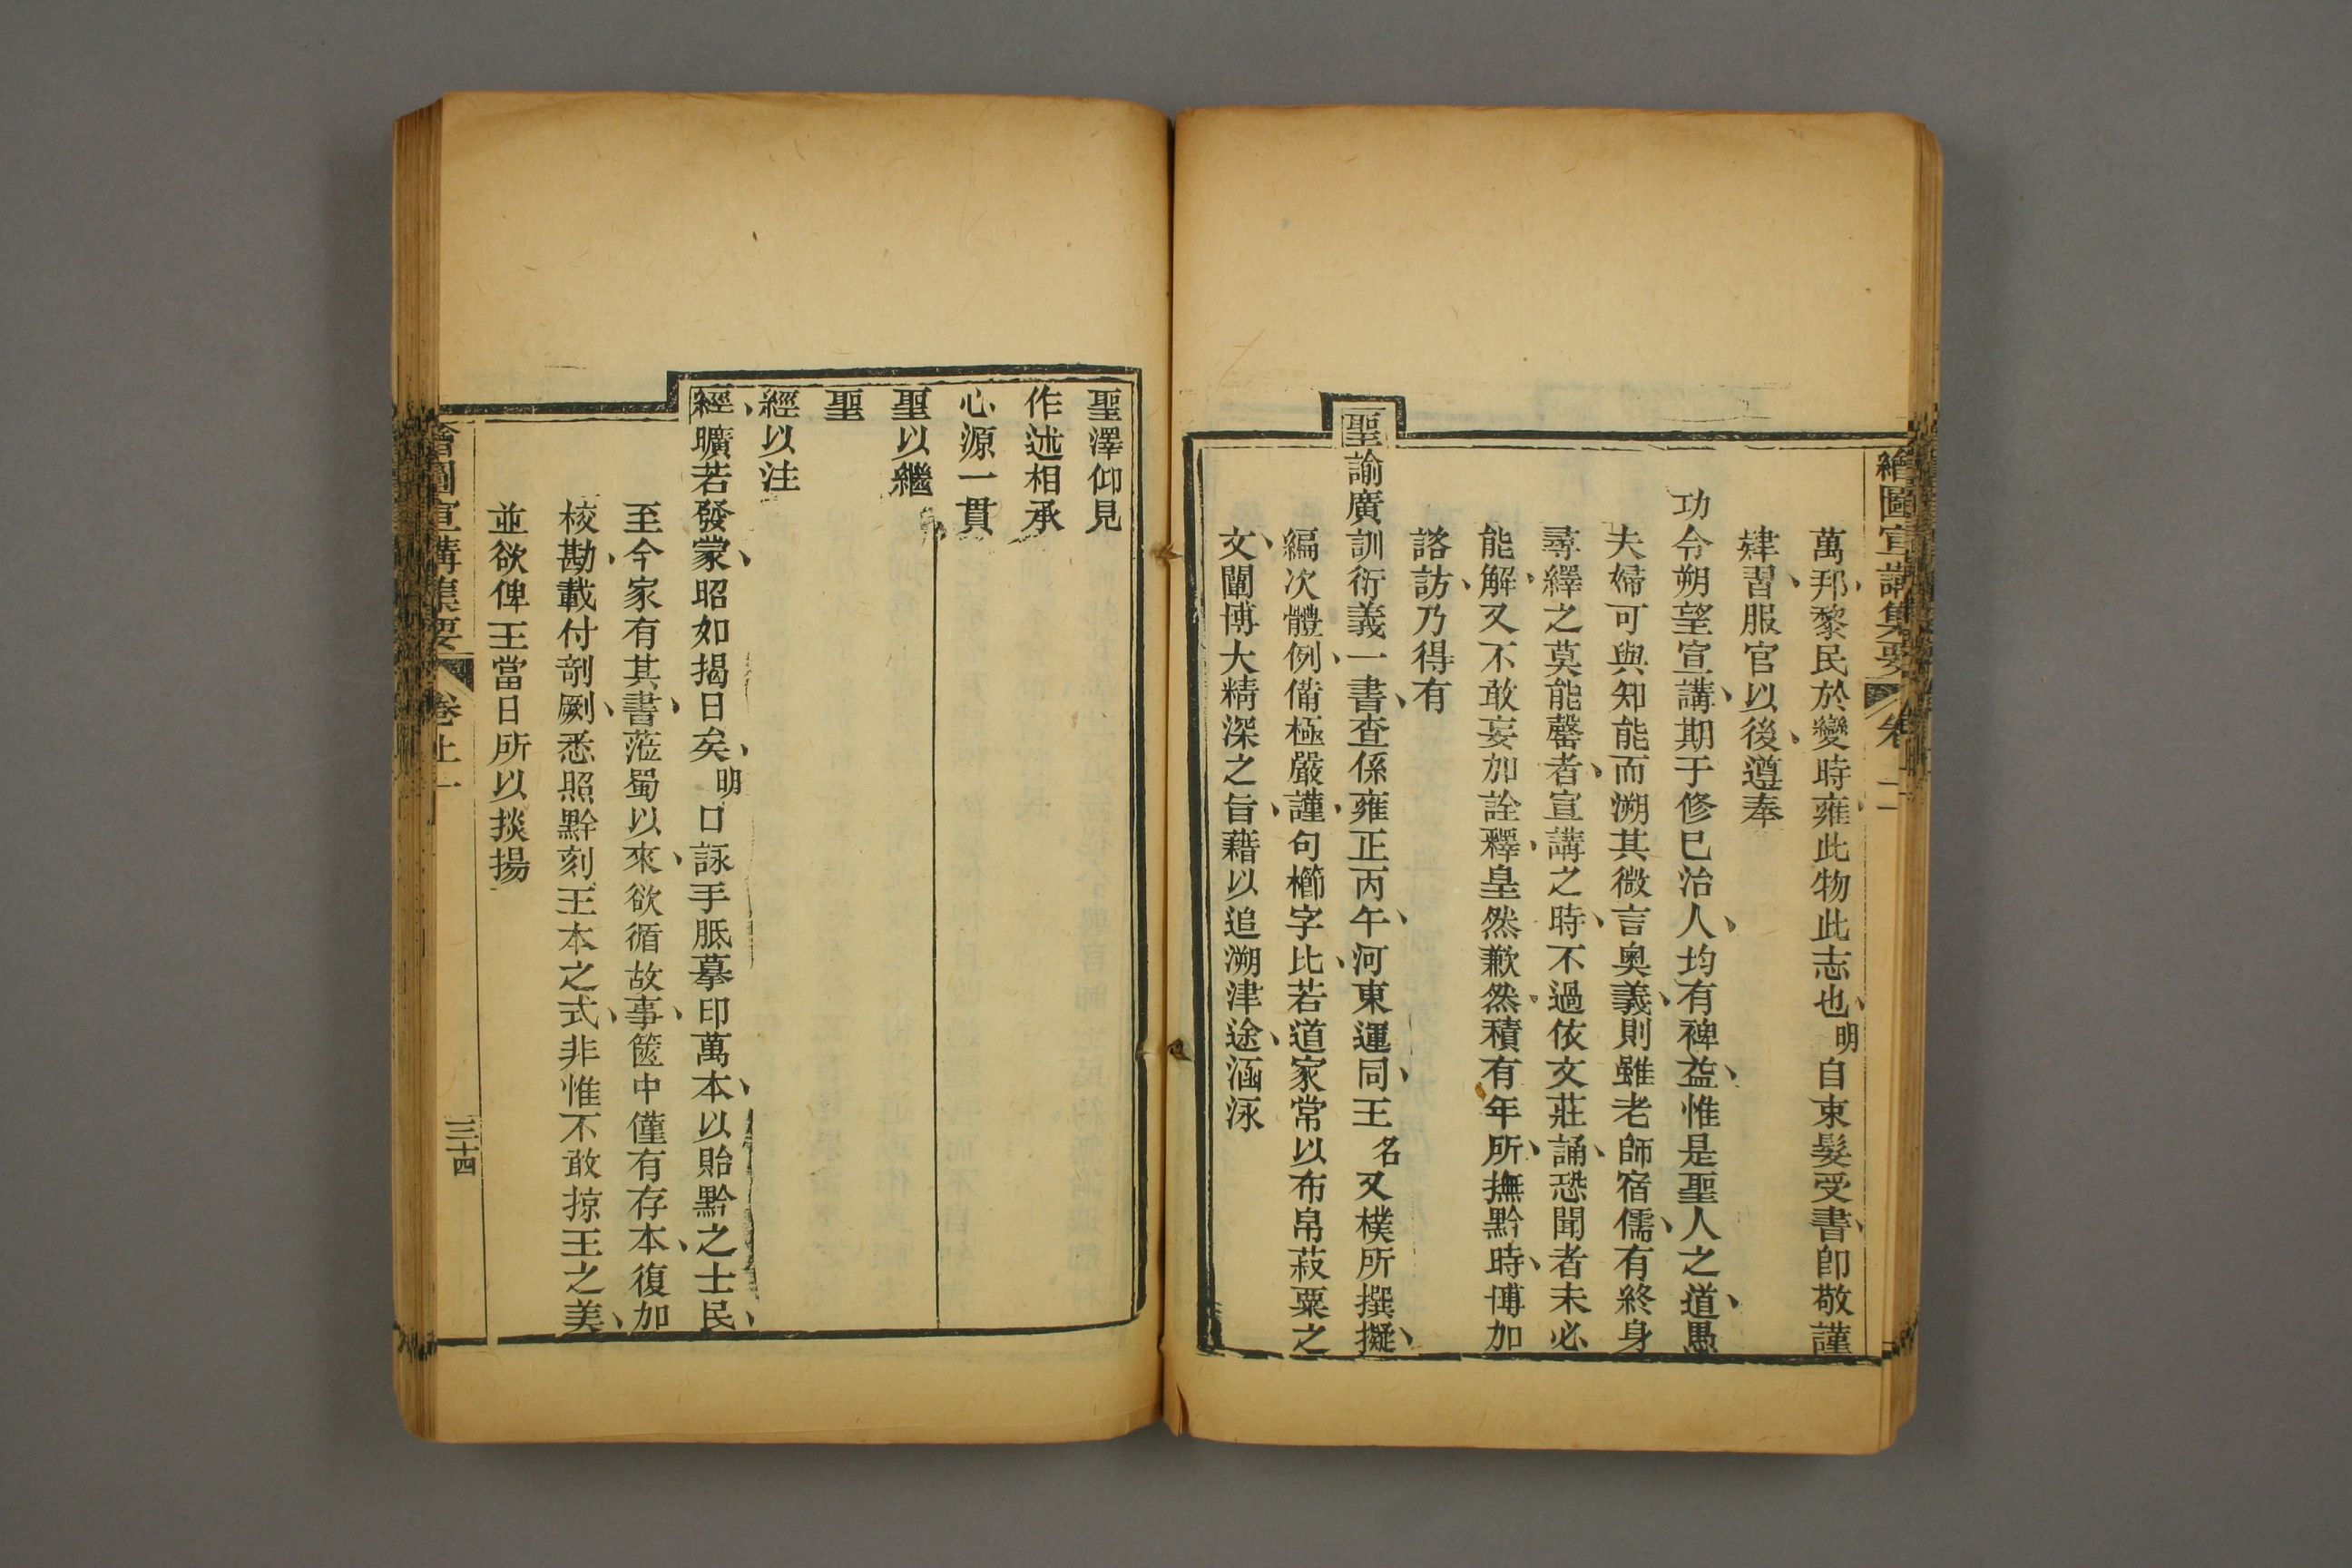 繪圖宣講集要 卷上一
萬邦黎民於變時雍此物此志也明自束髮受書卽敬謹
肄習服官以後遵奉
功令朔望宣講期于修己治人均有裨益惟是聖人之道愚
夫婦可與知能而溯其微言奧義則雖老師宿儒有終身
尋繹之莫能罄者宣講之時不過依文莊誦恐聞者未必
能解又不敢妄加詮釋皇然歉然積有年所撫黔時博加
諮訪乃得有
聖諭廣訓衍義一書查係雍正丙午河東運同王名又樸所撰擬
編次體例備極嚴謹句櫛字比若道家常以布帛菽粟之
文闡博大精深之旨藉以追溯津途涵泳
聖澤仰見
作述相承
心源一貫
聖以繼
聖
經以注
經曠若發蒙昭如揭日矣明口詠手胝摹印萬本以貽黔之士民
至今家有其書蒞蜀以來欲循故事篋中僅有存本復加
校勘載付剞劂悉照黔刻王本之式非惟不敢掠王之美
並欲俾王當日所以掞揚
繪圖宣講集要 卷上一 三十四